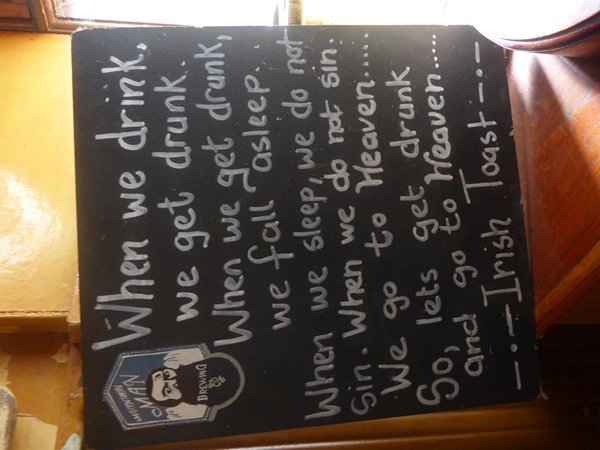 When we drink,
we get drunk.
When we get drunk,
we fall asleep.
When we sleep, we do not
sin. When we do not sin.
We go to Heaven.....
So, lets get drunk
and go to Heaven.....
—.— Irish Toast —.—
BREWING
Co